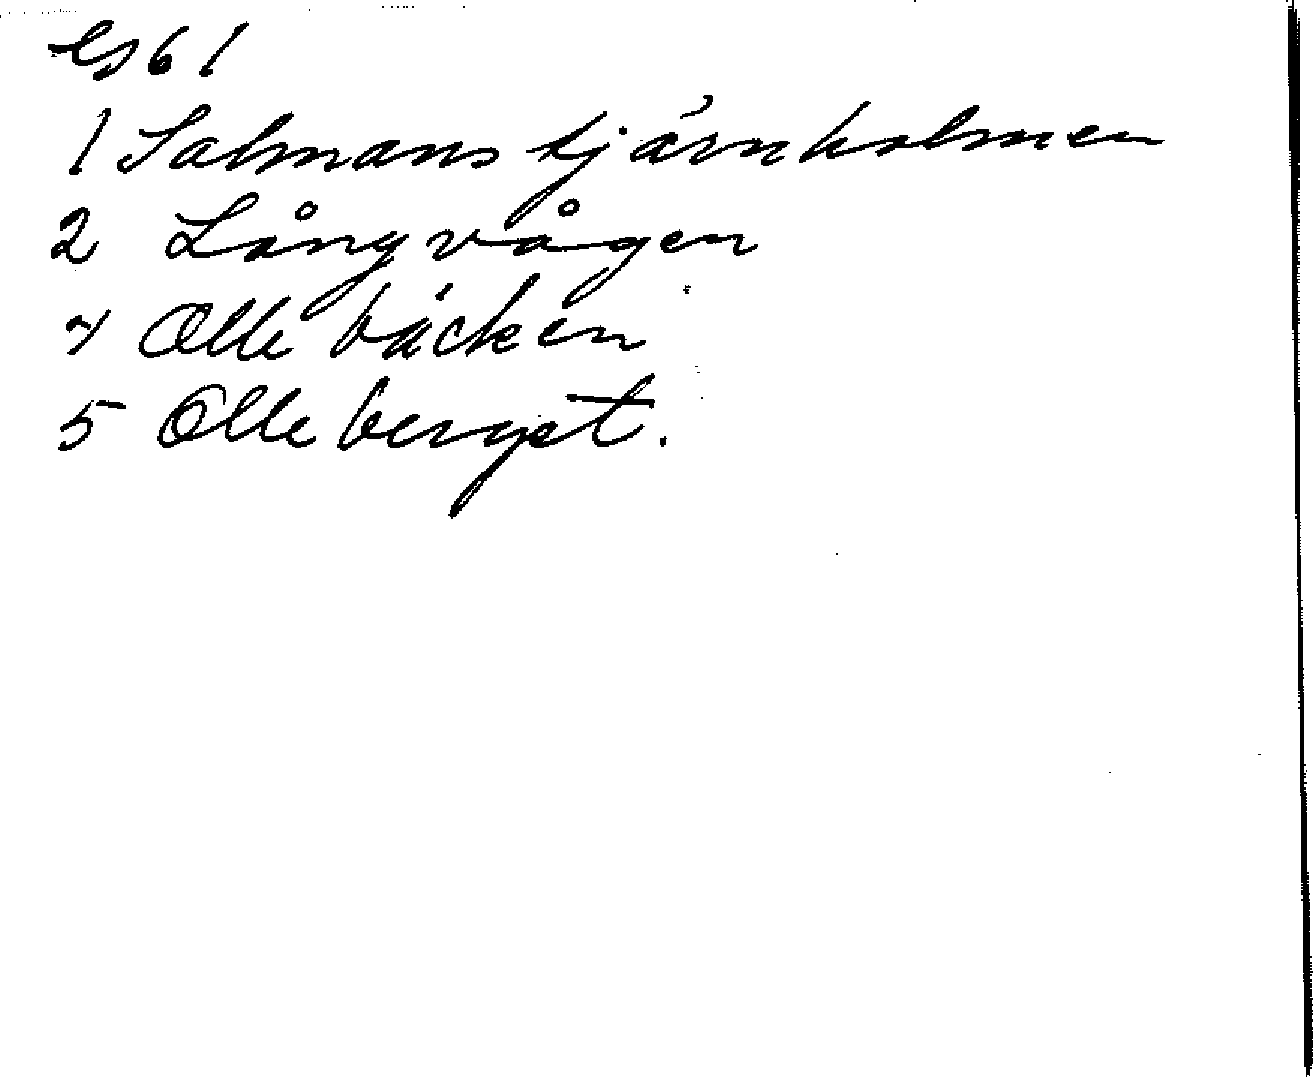 Gs 6 1
1 Salmans tjärnholmen
2 Långvågen
4 Olle bäcken
5 Olle berget.